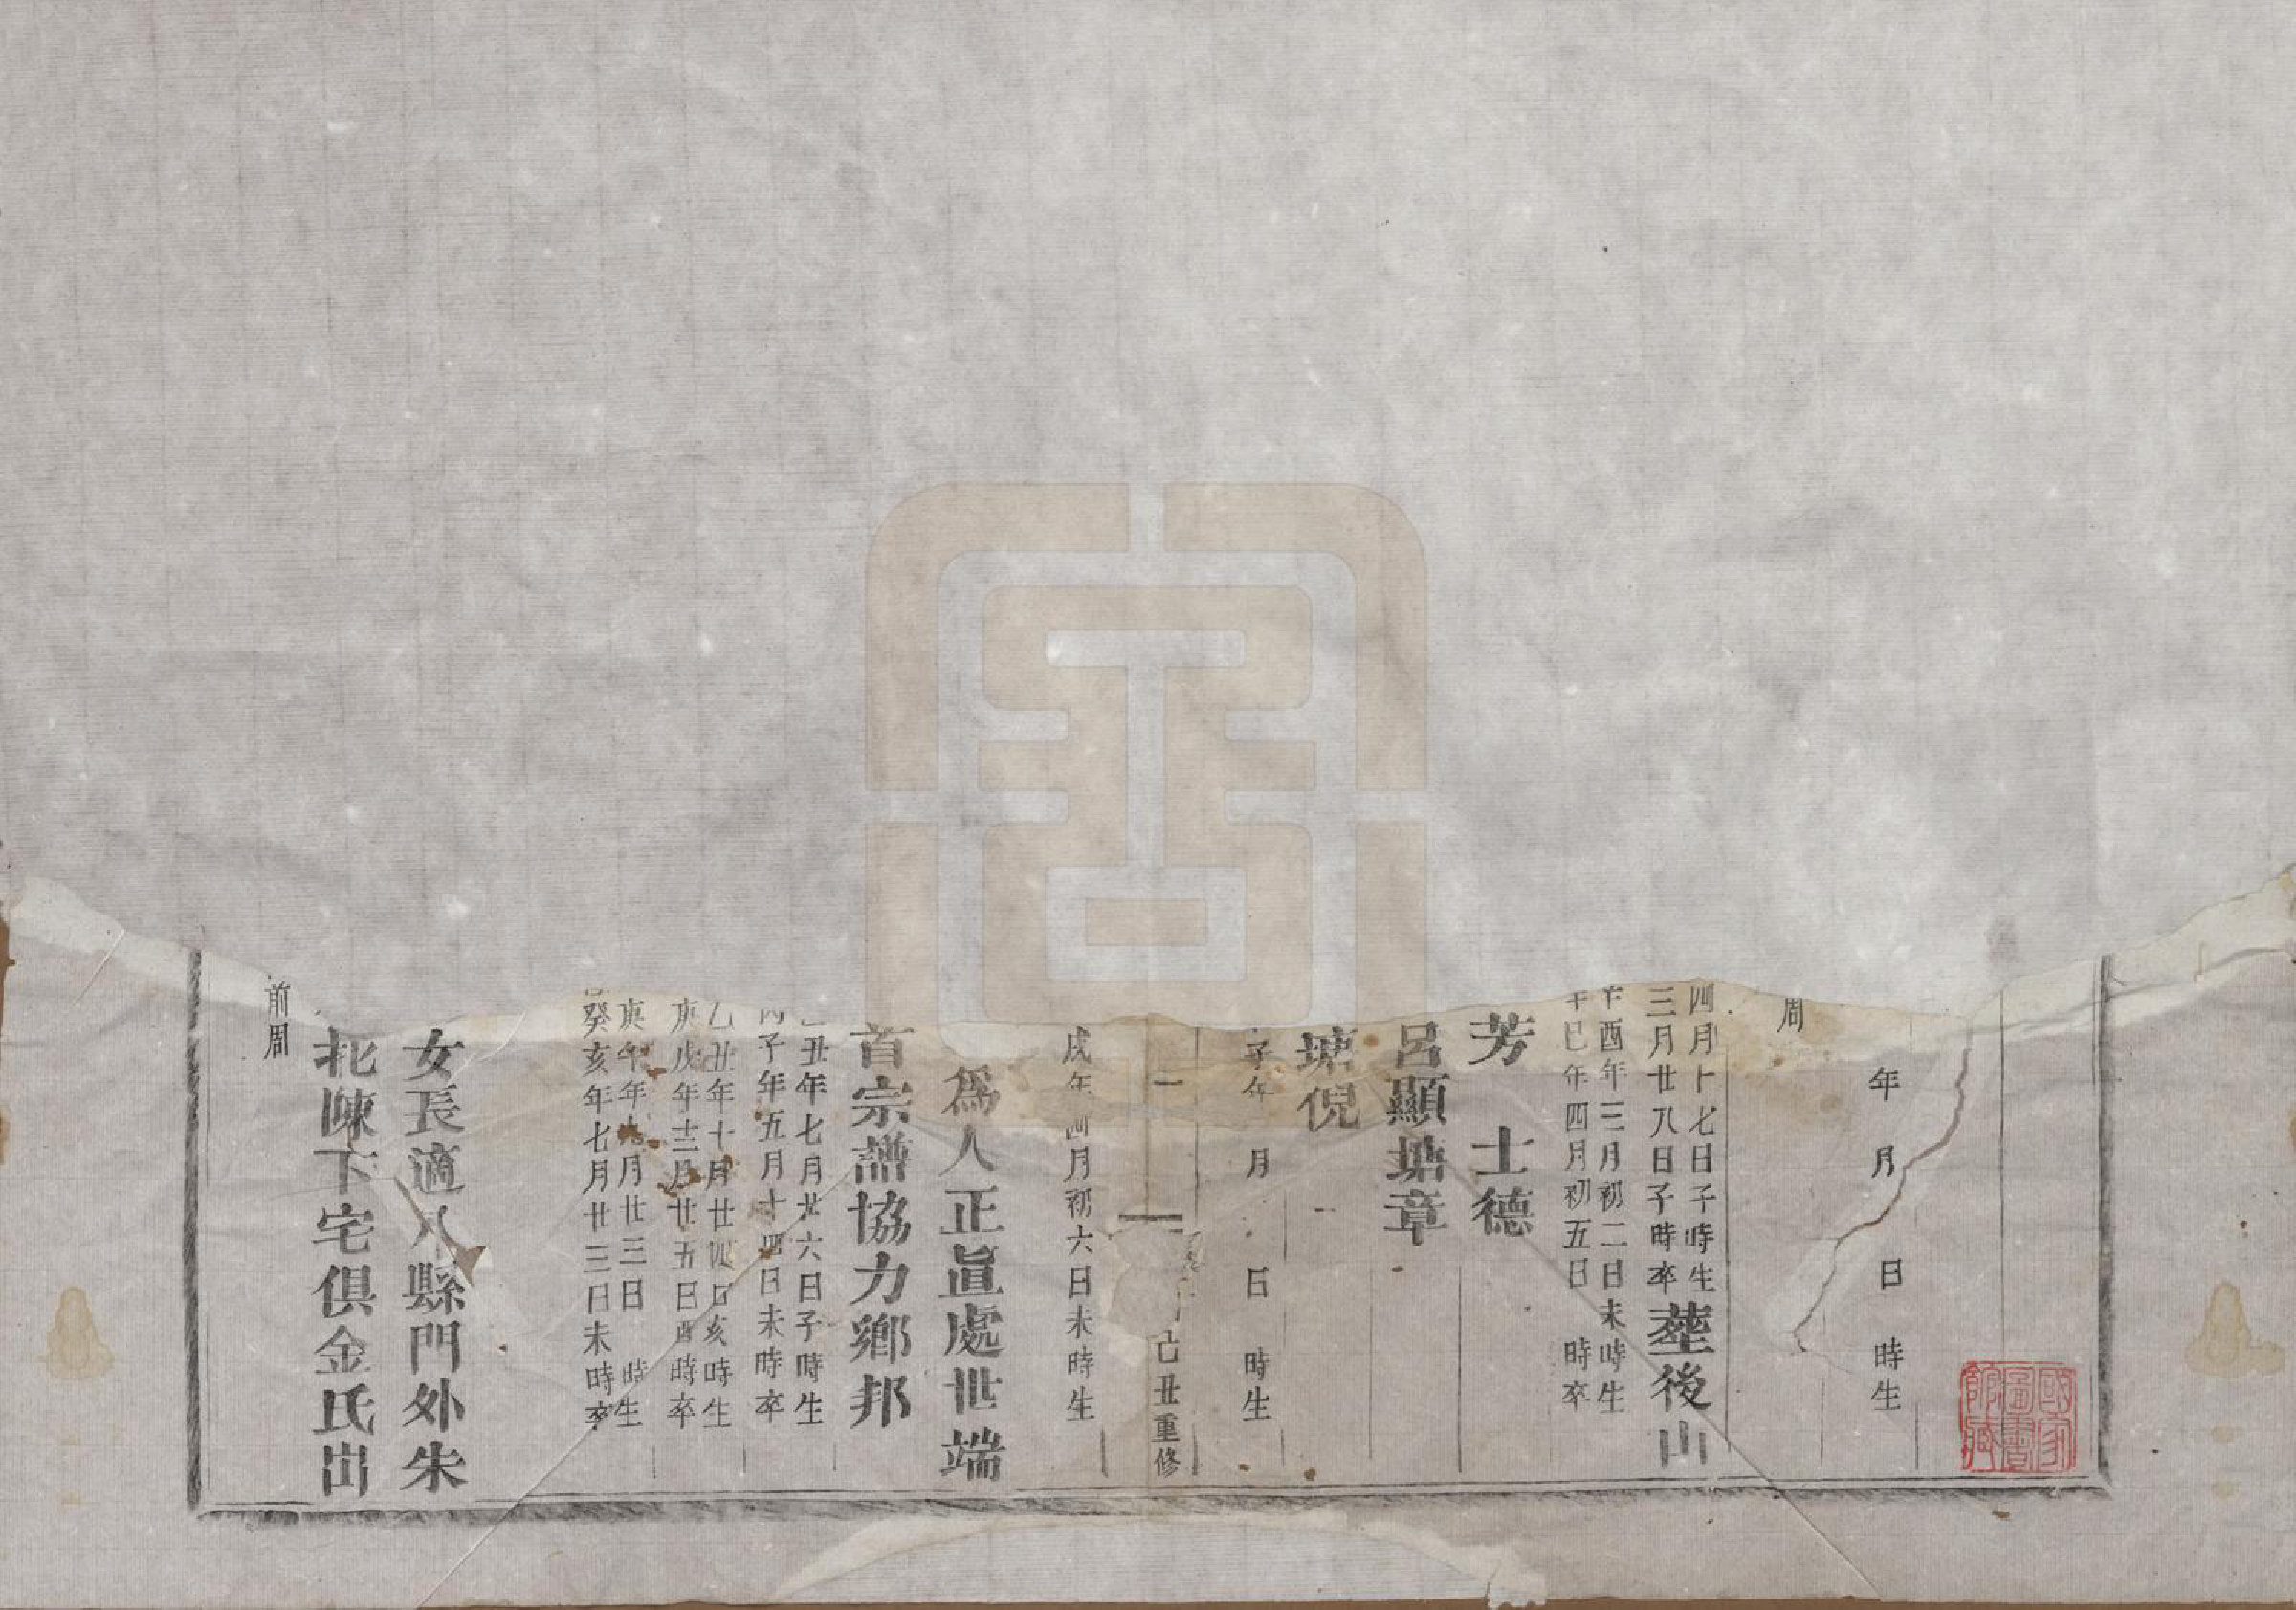 年 月 日 時生
周
四月十七日子時生
三月廿八日子時卒葬後山
酉年三月初二日未時生
巳年四月初五日 時卒
芳 士德
呂顯塘章
塘倪
子年 月 日 時生
一
丑重修
戌年四月初六日未時生
爲人正直處世端
首宗譜協力鄉邦
丑年七月廿六日子時生
丙子年五月十四日未時卒
乙丑年十月廿四日亥時生
庚戌年十二月廿五日酉時卒
庚午年九月廿三日 時生
癸亥年七月廿三日未時卒
女長適 縣門外朱
北陳下宅俱金氏出
前周
國家圖書館藏